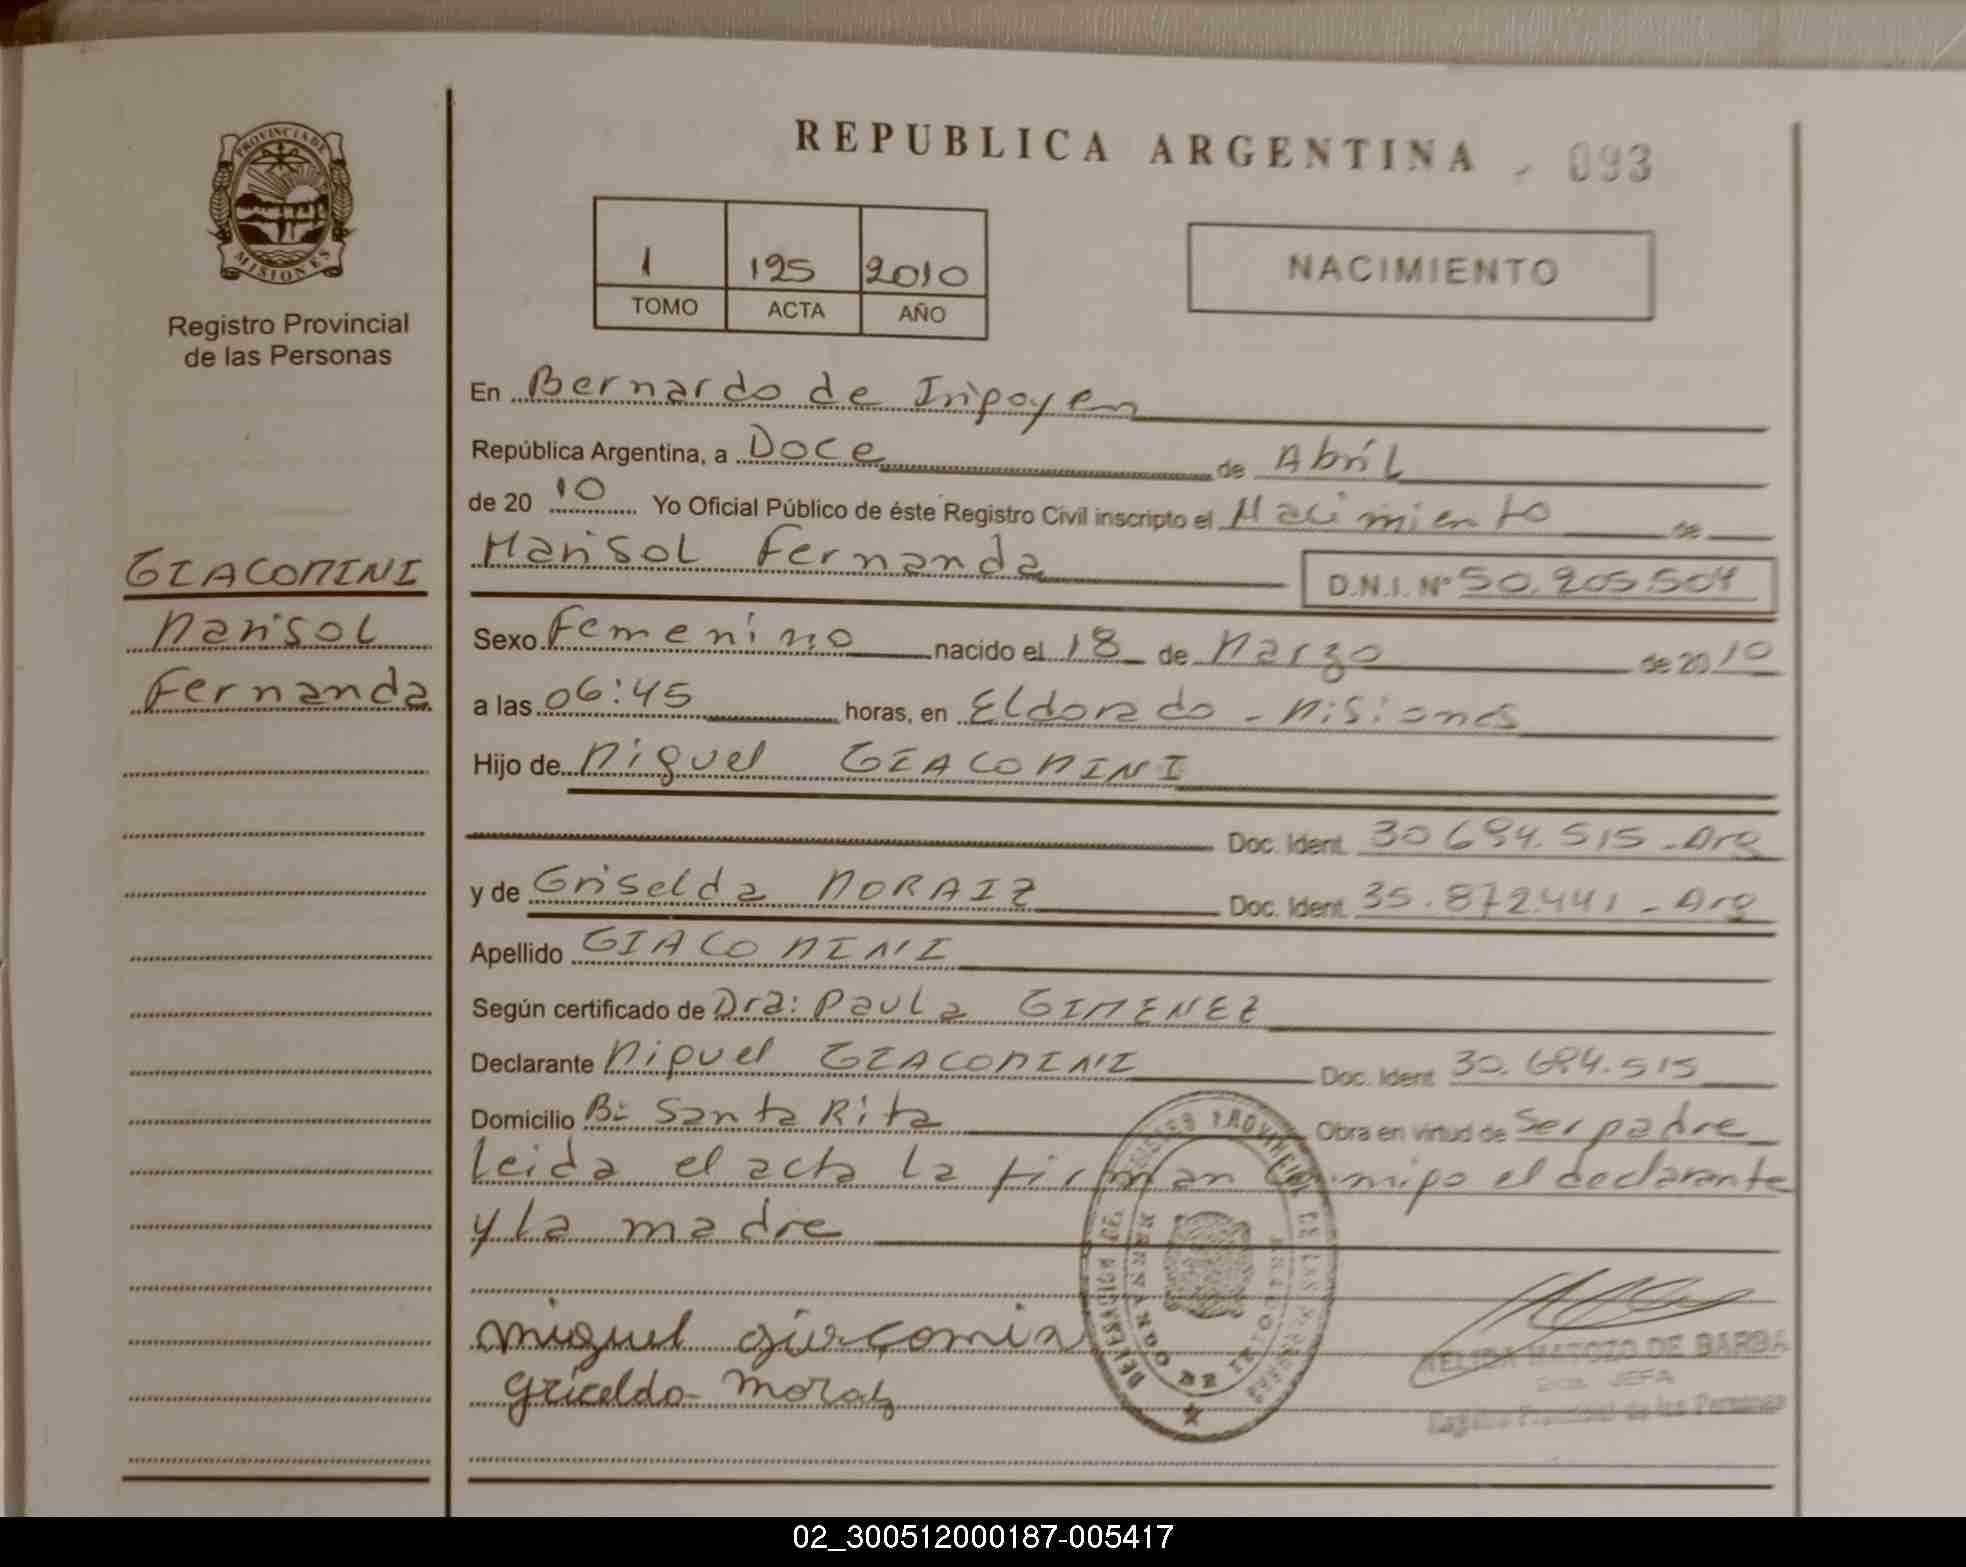 REPUBLICA ARGENTINA
093
PROVINCIA DE
MISIONES
Registro Provincial
de las Personas
1 125 2010
TOMO ACTA AÑO
NACIMIENTO
En Bernardo de Irigoyen
República Argentina, a Doce de Abríl
de 20 10 Yo Oficial Público de éste Registro Civil inscripto el Nacimiento de
Marisol Fernanda D.N.I. Nº 50.205.504
GIACOMINI
Marisol
Fernanda
Sexo Femenino nacido el 18 de Marzo de 2010
a las 06:45 horas, en Eldorado - Misiones
Hijo de Miguel GIACOMINI
Doc. Ident. 30694.515 - Arg
y de Griselda MORAIZ Doc. Ident. 35.872.441 - Arg
Apellido GIACOMINI
Según certificado de Dra: Paula GIMENEZ
Declarante Miguel GIACOMINI Doc. Ident 30.694.515
Domicilio Bº Santa Rita Obra en virtud de Ser padre
Leida el acta la firman conmigo el declarante
y la madre
miguel giacomin
griceldo moraz
NELIDA MATOZO DE BARBA
JEFA
Registro Provincial de las Personas
02_300512000187-005417